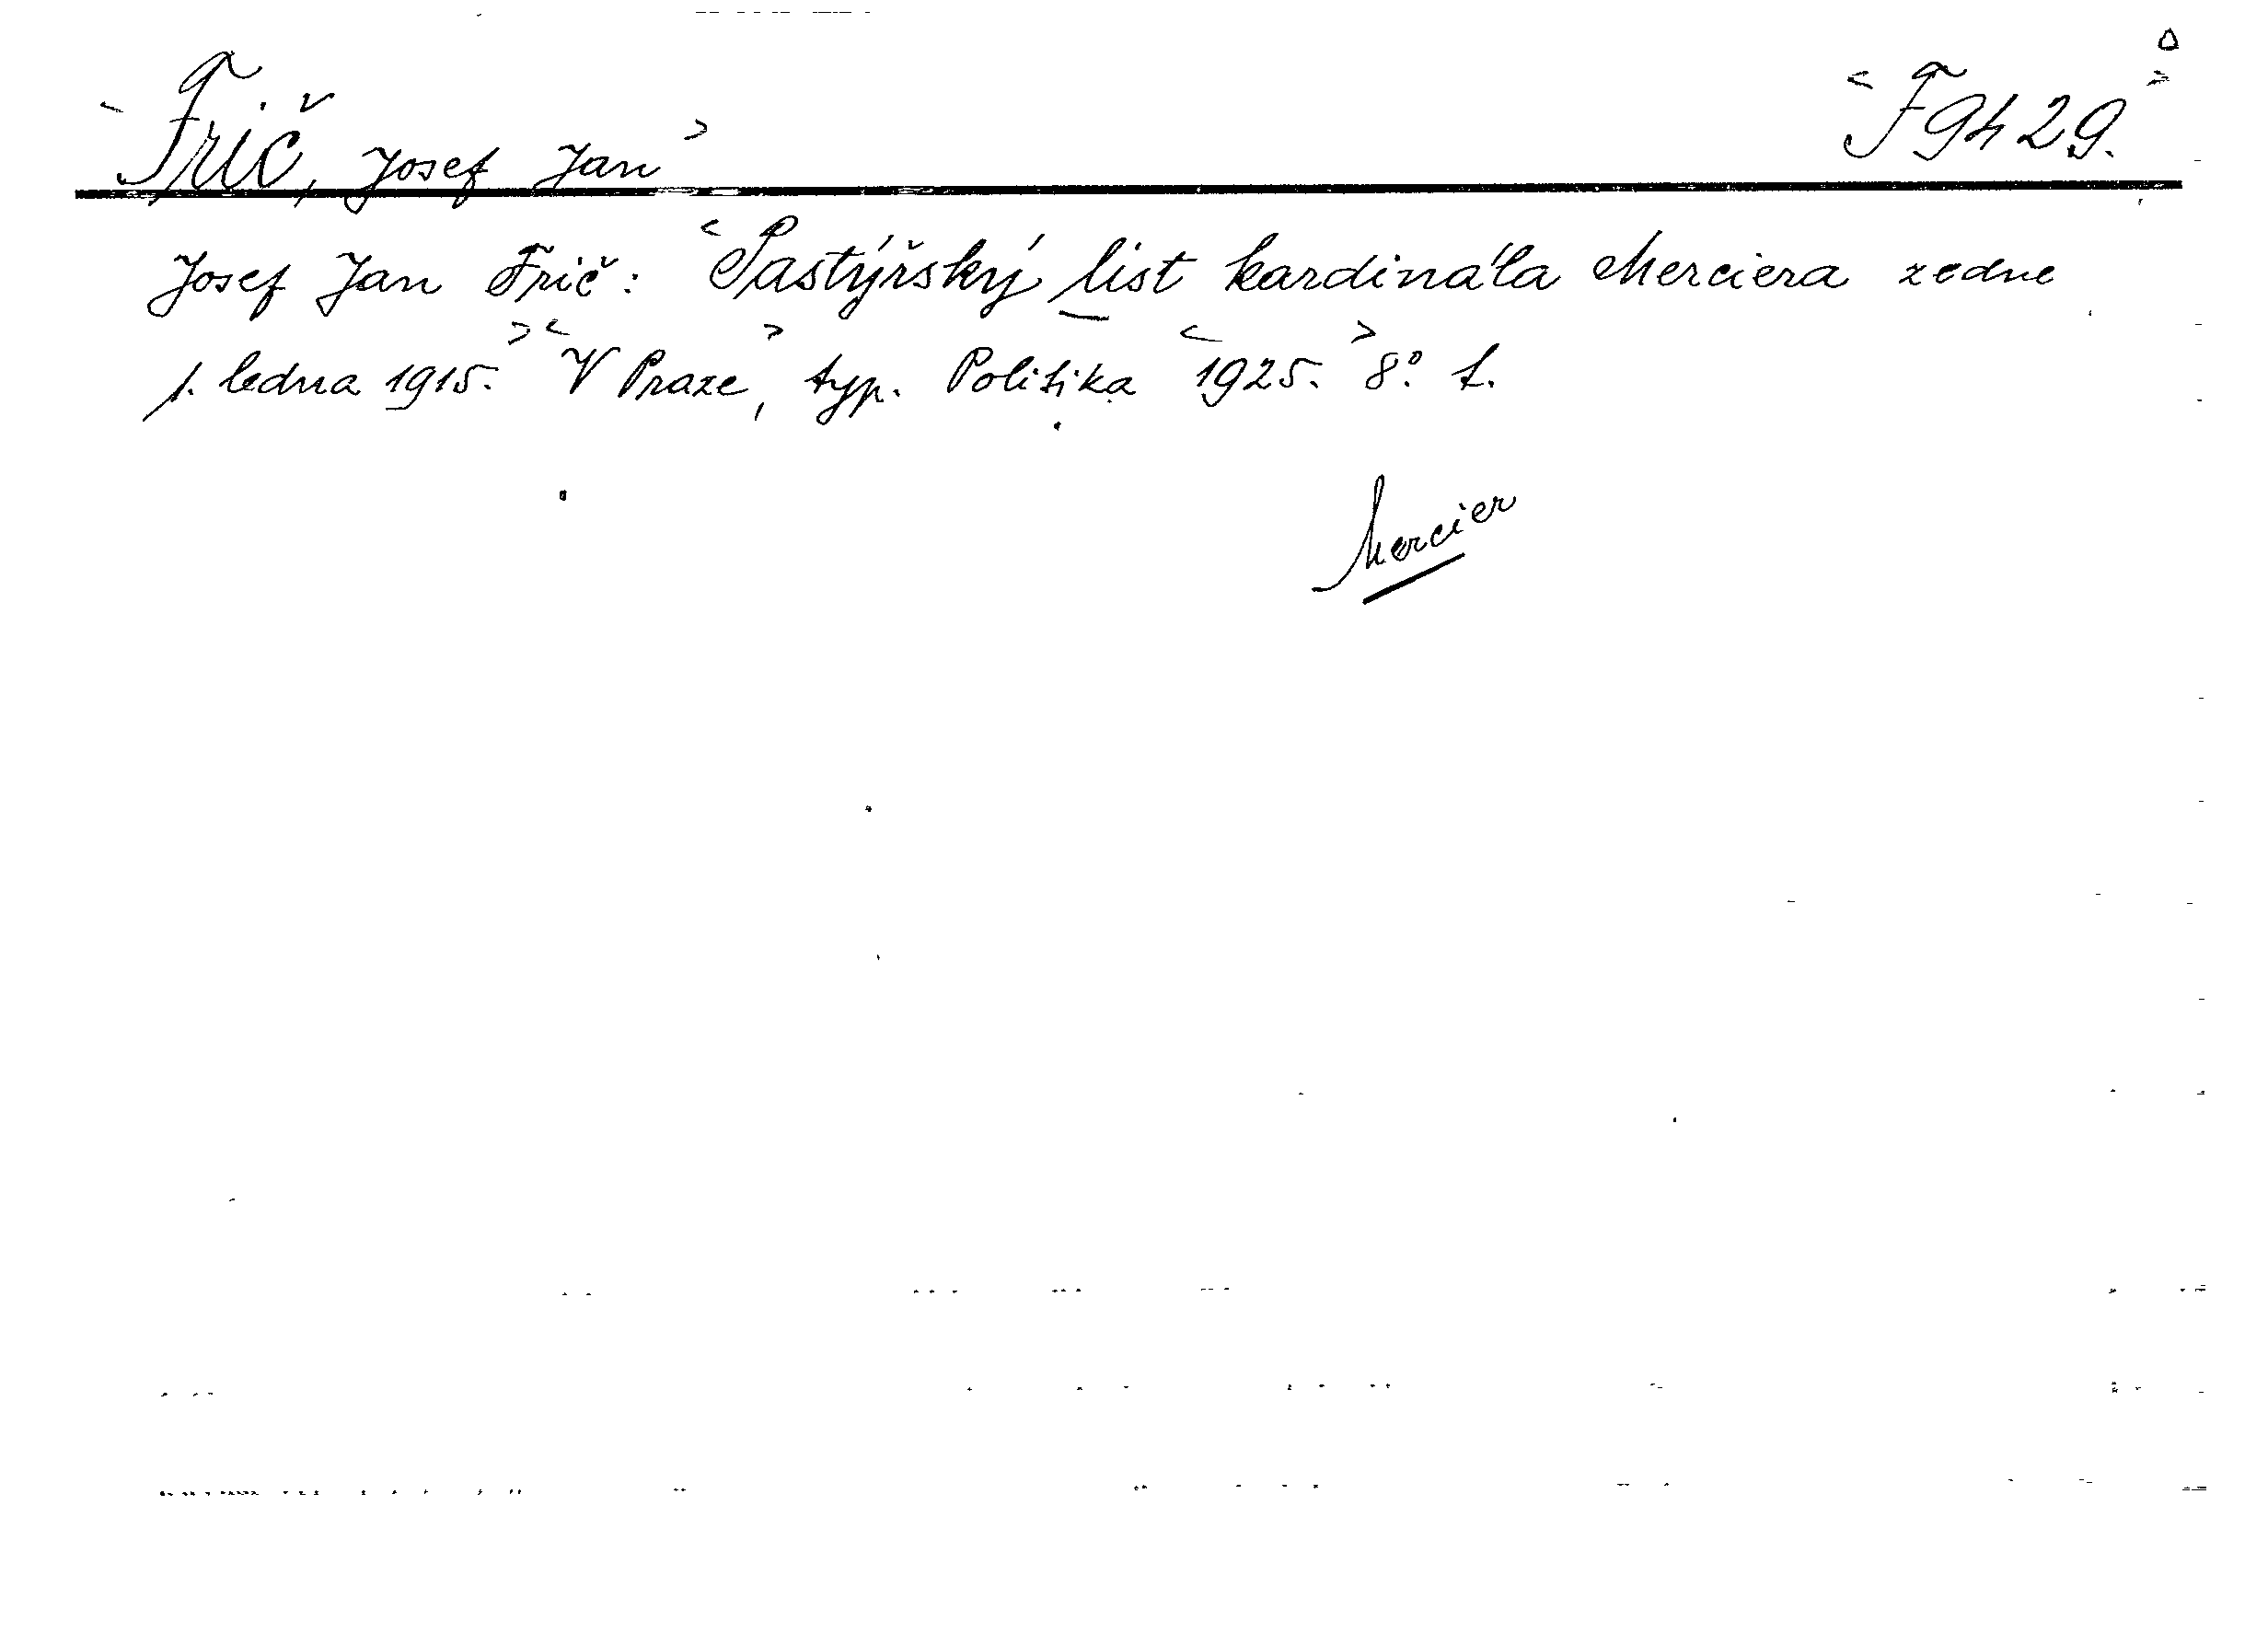 <Frič, Josef Jan> <F 9h 29.>
Josef Jan Frič: <Pastýřský list kardinála Merciera ze dne
1. ledna 1915.> <V Praze>, typ. Politika <1925.> 8°. f.
Mercier